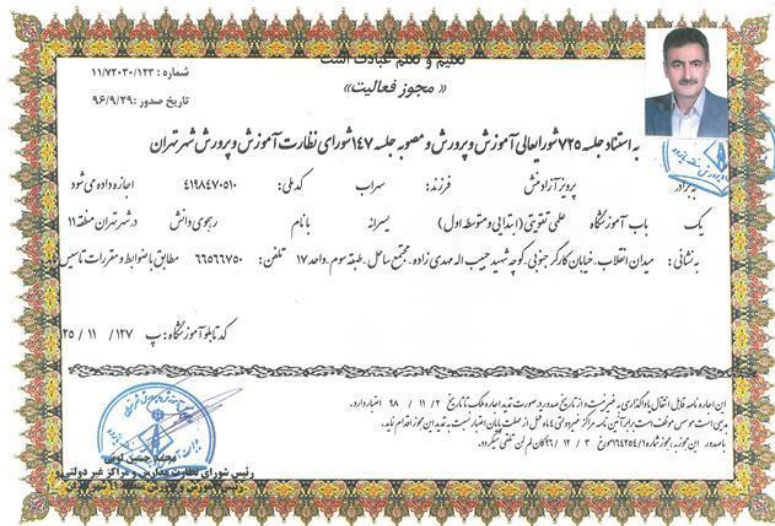 تعلیم و تعلم عبادت است
« مجوز فعالیت»
شماره : ۱۱/۷۲۰۳۰/۱۲۳
تاریخ صدور :۹۶/۹/۲۹
به استناد جلسه ۷۲۵ شورایعالی آموزش و پرورش و مصوبه جلسه ۱۴۷ شورای نظارت آموزش و پرورش شهر تهران
به برادر پرویز آزاد منش فرزند: سهراب کد ملی: ۴۱۹۸۴۷۰۵۱۰ اجازه داده می شود
یک باب آموزشگاه علمی تقویتی (ابتدایی و متوسطه اول) پسرانه با نام رهجوی دانش در شهر تهران منطقه ۱۱
به نشانی : میدان انقلاب ـ خیابان کارگر جنوبی ـ کوچه شهید حبیب اله مهدی زاده ـ مجتمع ساحل ـ طبقه سوم ـ واحد ۱۷ تلفن: ۶۶۵۶۶۷۵۰ مطابق با ضوابط و مقررات تاسیس
کد تابلو آموزشگاه: پ ۱۲۷/ ۱۱ / ۲۵
این اجاره نامه قابل انتقال یا واگذاری به غیر نیست و از تاریخ صدور در صورت تمدید اجاره ملک تا تاریخ ۲ / ۱۱ / ۹۸ اعتبار دارد .
بدیهی است موسس موظف است برابر آئین نامه مراکز غیر دولتی ۶ ماه قبل از مهلت پایان اعتبار نسبت به تمدید این مجوز اقدام نماید.
با صدور این مجوز به مجوز شماره مورخ ۳ / ۱۲ / کان لم لن تلقی میگردد.
محمد حسن
رئیس شورای نظارت مدارس و مراکز غیر دولتی و
رئیس آموزش و پرورش منطقه ۱۱ شهر تهران